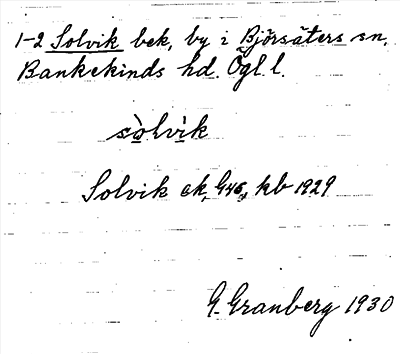 1-2 Solvik bek, by i Björsäters sn,
Bankekinds hd. Ögl. l.
sòlvìk
Solvik ek, G46, kb 1929
G. Granberg 1930